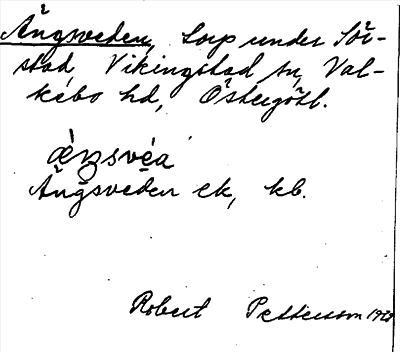 Ängsveden, torp under Sör-
stad, Vikingstad sn, Val-
kebo hd, Östergötl.
ä̀ŋsve̱a
Ängsveden ek, kb.
Robert Pettersson